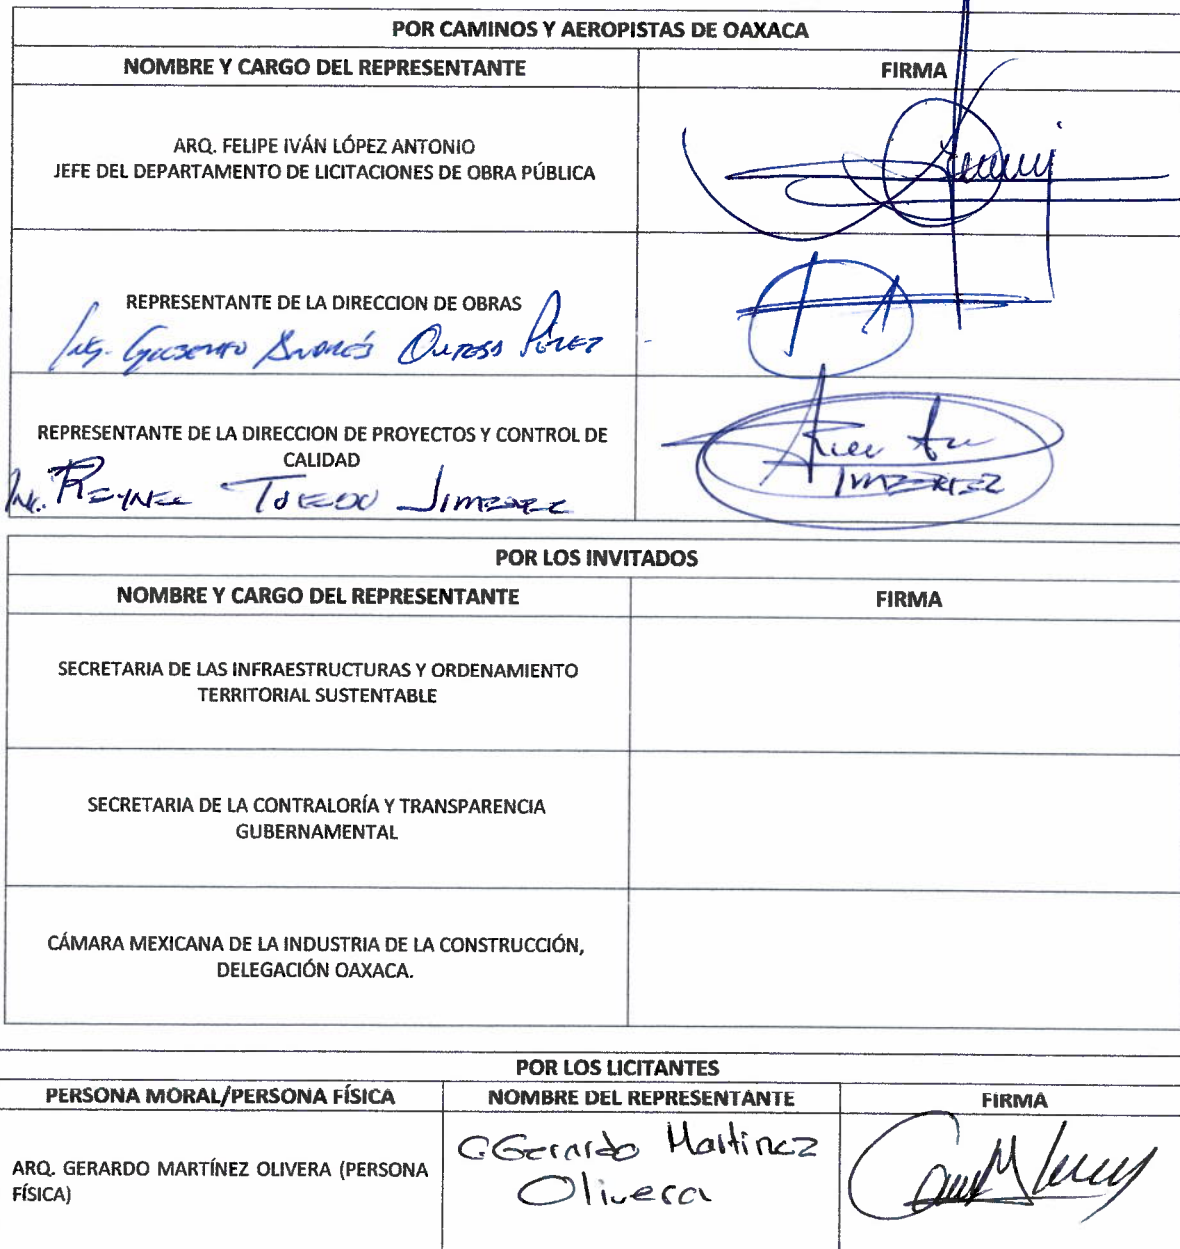 POR CAMINOS Y AEROPISTAS DE OAXACA
NOMBRE Y CARGO DEL REPRESENTANTE FIRMA
ARQ. FELIPE IVÁN LÓPEZ ANTONIO
JEFE DEL DEPARTAMENTO DE LICITACIONES DE OBRA PÚBLICA
REPRESENTANTE DE LA DIRECCION DE OBRAS
Ing. Andrés Pérez
REPRESENTANTE DE LA DIRECCION DE PROYECTOS Y CONTROL DE
CALIDAD
Ing. Reynel Toledo Jimenez
JIMENEZ
POR LOS INVITADOS
NOMBRE Y CARGO DEL REPRESENTANTE FIRMA
SECRETARIA DE LAS INFRAESTRUCTURAS Y ORDENAMIENTO
TERRITORIAL SUSTENTABLE
SECRETARIA DE LA CONTRALORÍA Y TRANSPARENCIA
GUBERNAMENTAL
CÁMARA MEXICANA DE LA INDUSTRIA DE LA CONSTRUCCIÓN,
DELEGACIÓN OAXACA.
POR LOS LICITANTES
PERSONA MORAL/PERSONA FÍSICA NOMBRE DEL REPRESENTANTE FIRMA
ARQ. GERARDO MARTÍNEZ OLIVERA (PERSONA
FÍSICA)
C. Gerardo Martinez
Olivera